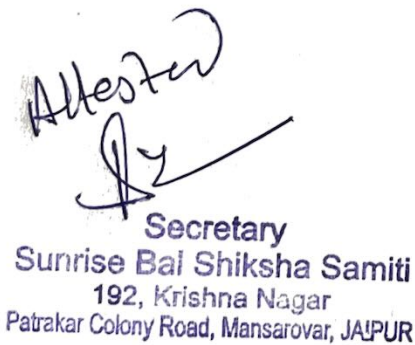 Attested
Secretary
Sunrise Bal Shiksha Samiti
192, Krishna Nagar
Patrakar Colony Road, Mansarovar, JAIPUR